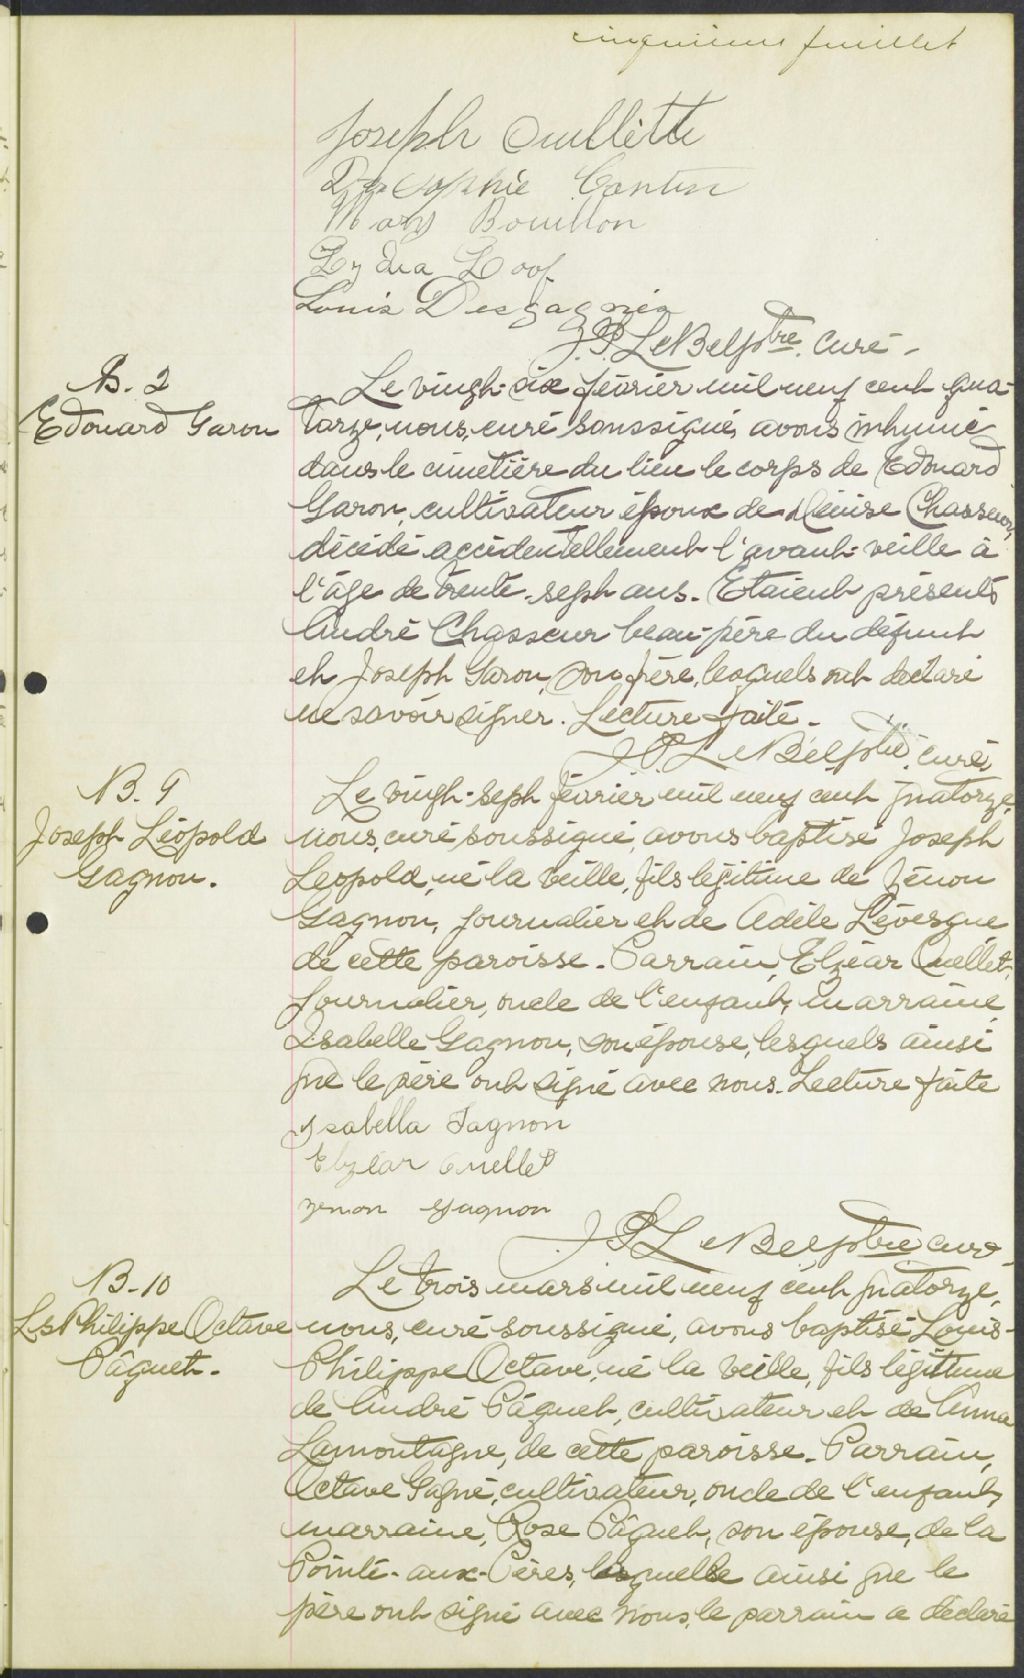 cinquième feuillet
Joseph Ouellette
Sophie Cantin
Mary Bouillon
Lydia Loof
Louis Desgagnés
J.P. LeBel ptre. curé -
B. 2
Edouard Garon
Le vingt-six février mil neuf cent qua-
torze, nous, curé soussigné, avons inhumé
dans le cimetière du lieu le corps de Edouard
Garon, cultivateur époux de Denise Chasseur,
décédé accidentellement l'avant-veille à
l'âge de trente-sept ans. Etaient présents
André Chasseur beau-père du défunt
et Joseph Garon, son frère, lesquels ont declaré
ne savoir signer. Lecture faite -
J.P. LeBel ptre, curé,
B. 9
Joseph Léopold
Gagnon.
Le vingt-sept février mil neuf cent quatorze,
nous, curé soussigné, avons baptisé Joseph
Leopold, né la veille, fils légitime de Zénon
Gagnon, journalier et de Adèle Lévesque
de cette paroisse. Parrain, Elzéar Ouellet,
journalier, oncle de l'enfant, marraine,
Isabelle Gagnon, son épouse, lesquels ainsi
que le père ont signé avec nous. Lecture faite
Isabella Gagnon
Elzéar Ouellet
zenon gagnon
J.P. LeBel ptre curé.
B-10
Ls Philippe Octave
Pâquet.
Le trois mars mil neuf cent quatorze,
nous, curé soussigné, avons baptisé Louis-
Philippe Octave, né la veille, fils légitime
de André Pâquet, cultivateur et de Anna
Lamontagne, de cette paroisse. Parrain,
Octave Gagné, cultivateur, oncle de l'enfant,
marraine, Rose Pâquet, son épouse, de la
Pointe-aux-Pères, laquelle ainsi que le
père ont signé avec nous, le parrain a déclaré